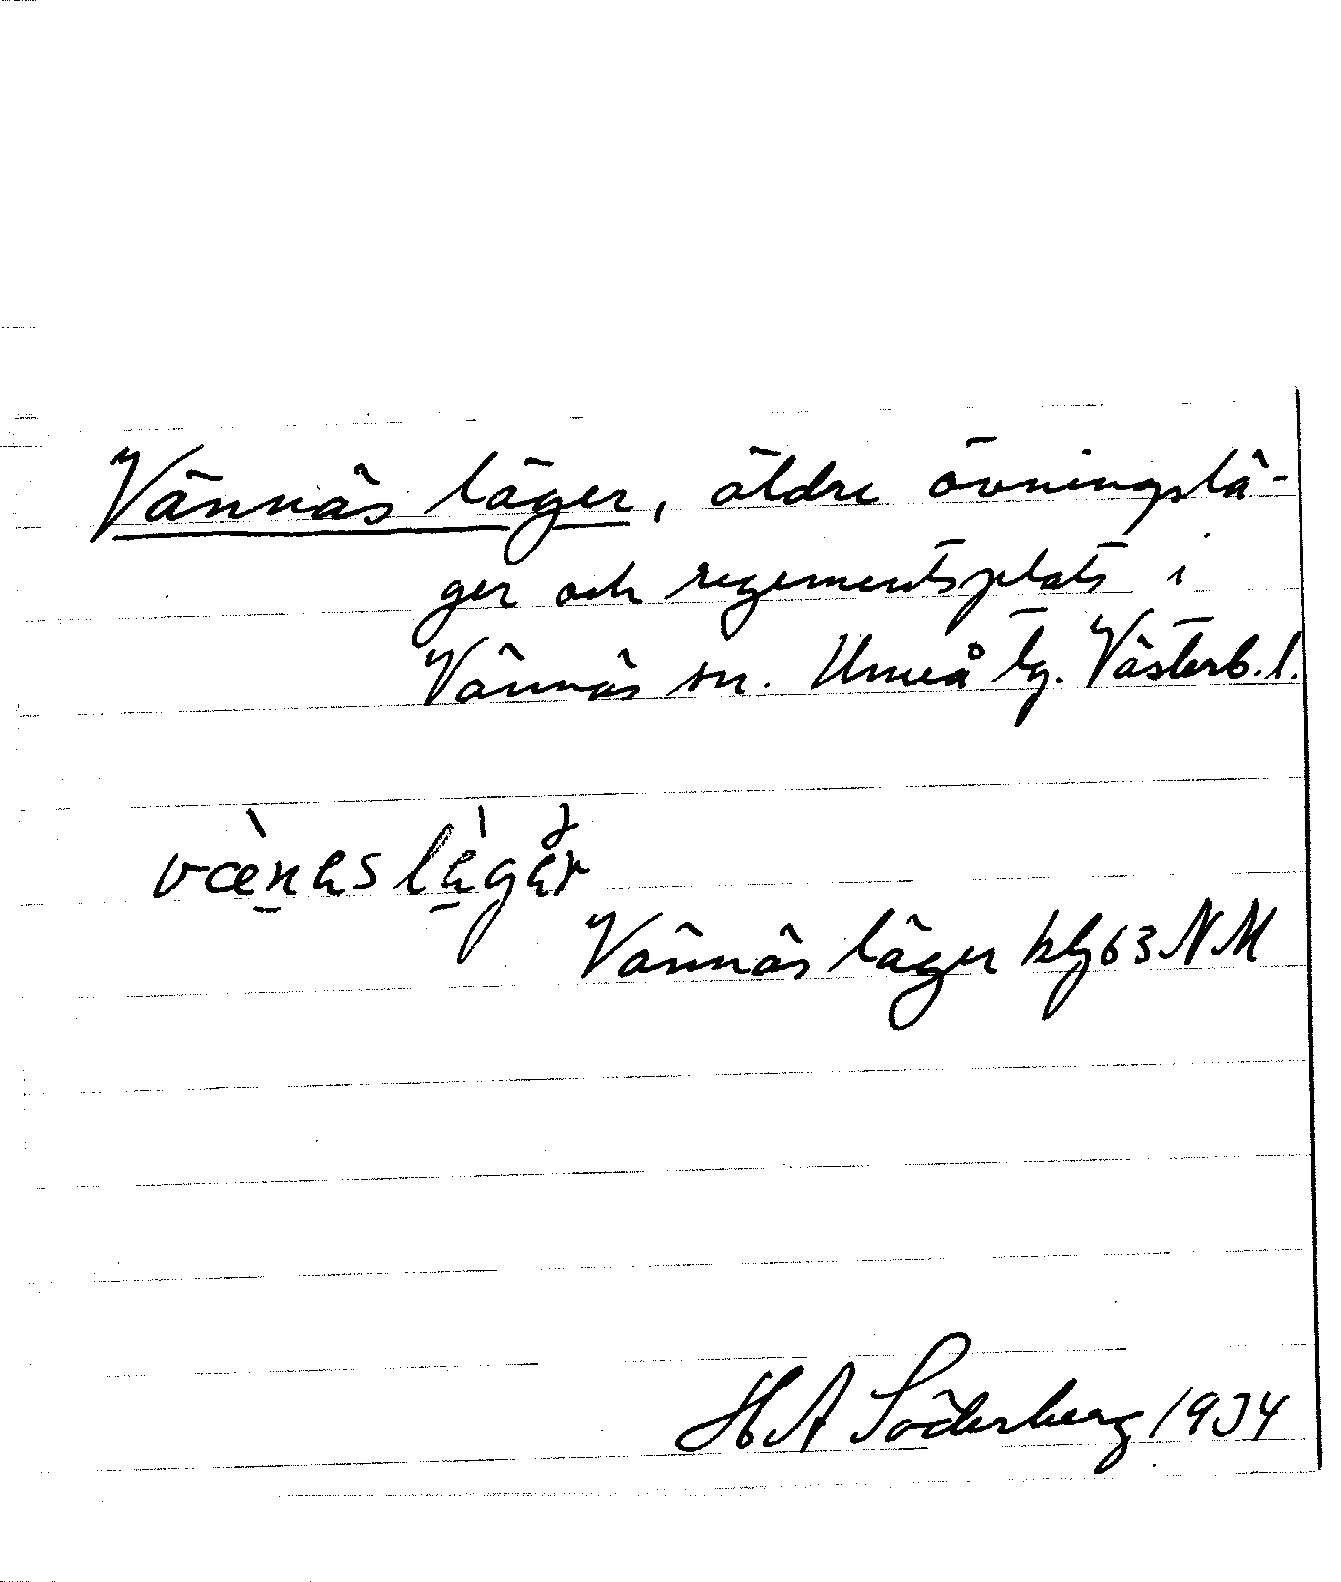 Vännäs läger, äldre övningslä-
ger och regementsplats i
Vännäs sn. Umeå tg. Västerb. l.
Vännäs läger kbl 63 NM
H A Söderberg 1934